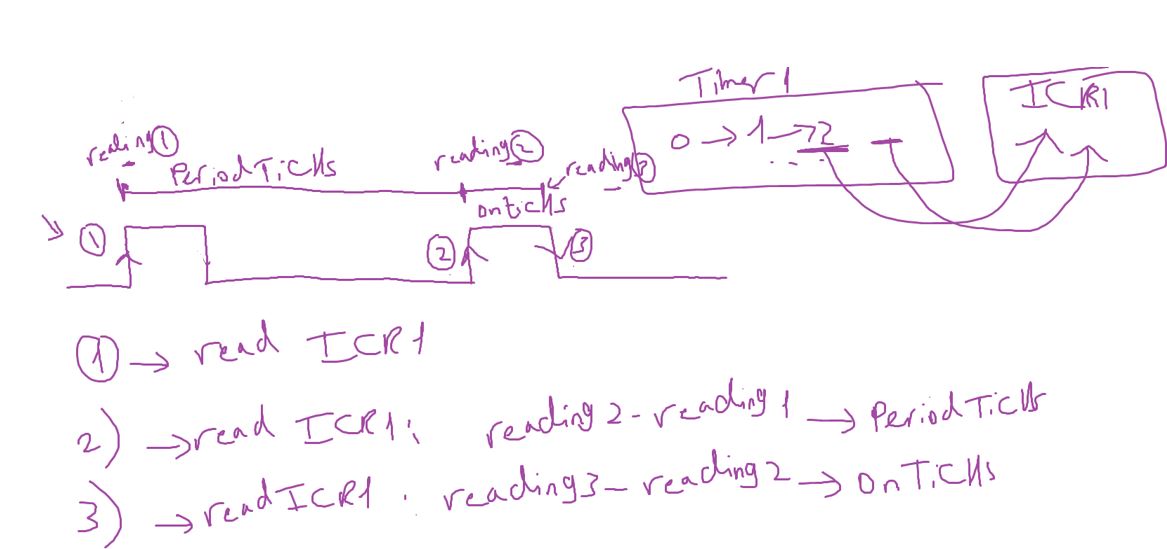 Timer 1
ICR1
0 → 1 → 2
reading ①
PeriodTicks
reading ②
reading ③
onticks
①
②
③
① → read ICR1
2) → read ICR1: reading 2 - reading 1 → PeriodTicks
3) → read ICR1 : reading3 - reading 2 → OnTicks